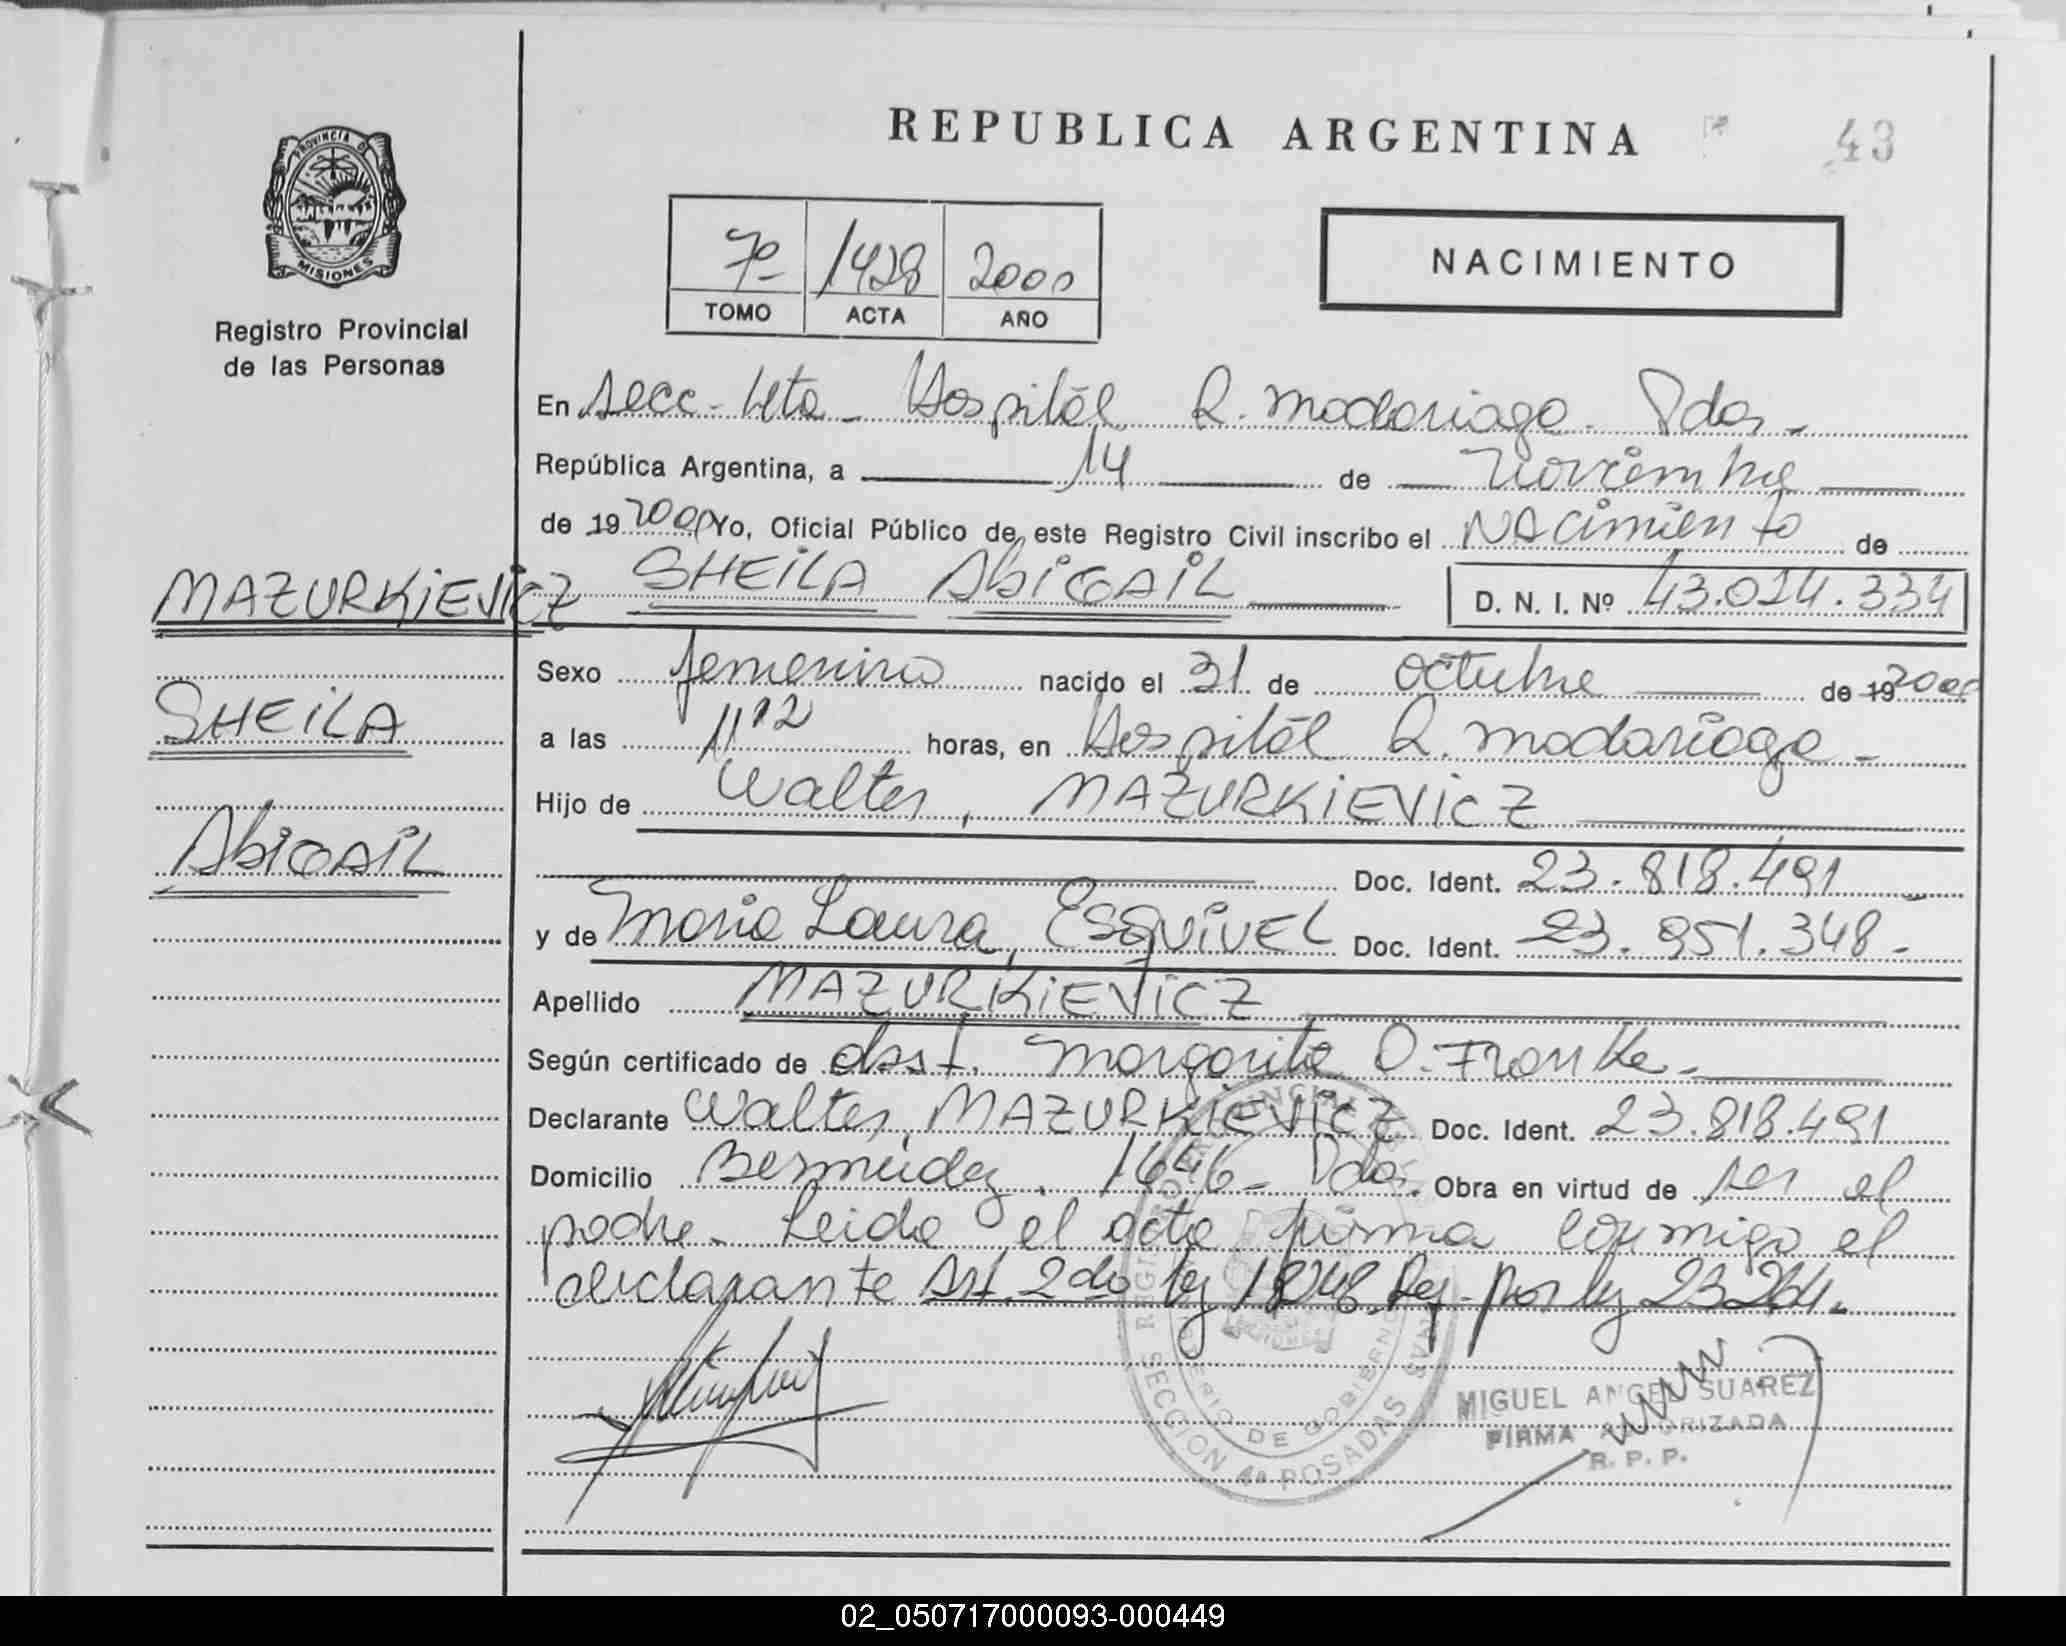 REPUBLICA ARGENTINA
43
PROVINCIA D
MISIONES
Registro Provincial
de las Personas
7º 1428 2000
TOMO ACTA AÑO
NACIMIENTO
En Secc - 4ta - Hospital R. Madariaga. Pdas -
República Argentina, a 14 de Noviembre
de 19 2000 Yo, Oficial Público de este Registro Civil inscribo el Nacimiento de
MAZURKiEViCZ
SHEiLA AbiGAiL D. N. I. Nº 43.014.334
Sexo femenino nacido el 31 de octubre de 19 2000
SHEiLA
a las 11 12 horas, en Hospital R. Madariaga -
Hijo de Walter, MAZURKiEViCZ
AbiGAiL
Doc. Ident. 23.818.491 -
y de Maria Laura, ESQUiVEL Doc. Ident. 23.951.348 -
Apellido MAZURKiEViCZ
Según certificado de obst. Margarita O. Franke -
Declarante Walter, MAZURKiEViCZ Doc. Ident. 23.818.491
Domicilio Bermudez. 1646 - Pdas. Obra en virtud de ser el
padre. Leida el acta firma conmigo el
declarante Art. 2do ley 18248. Reg. por ley 23264.
SECCION 4ª POSADAS
DE GOBIERNO
MIGUEL ANGEL SUAREZ
FIRMA AUTORIZADA
R. P. P.
02_050717000093-000449